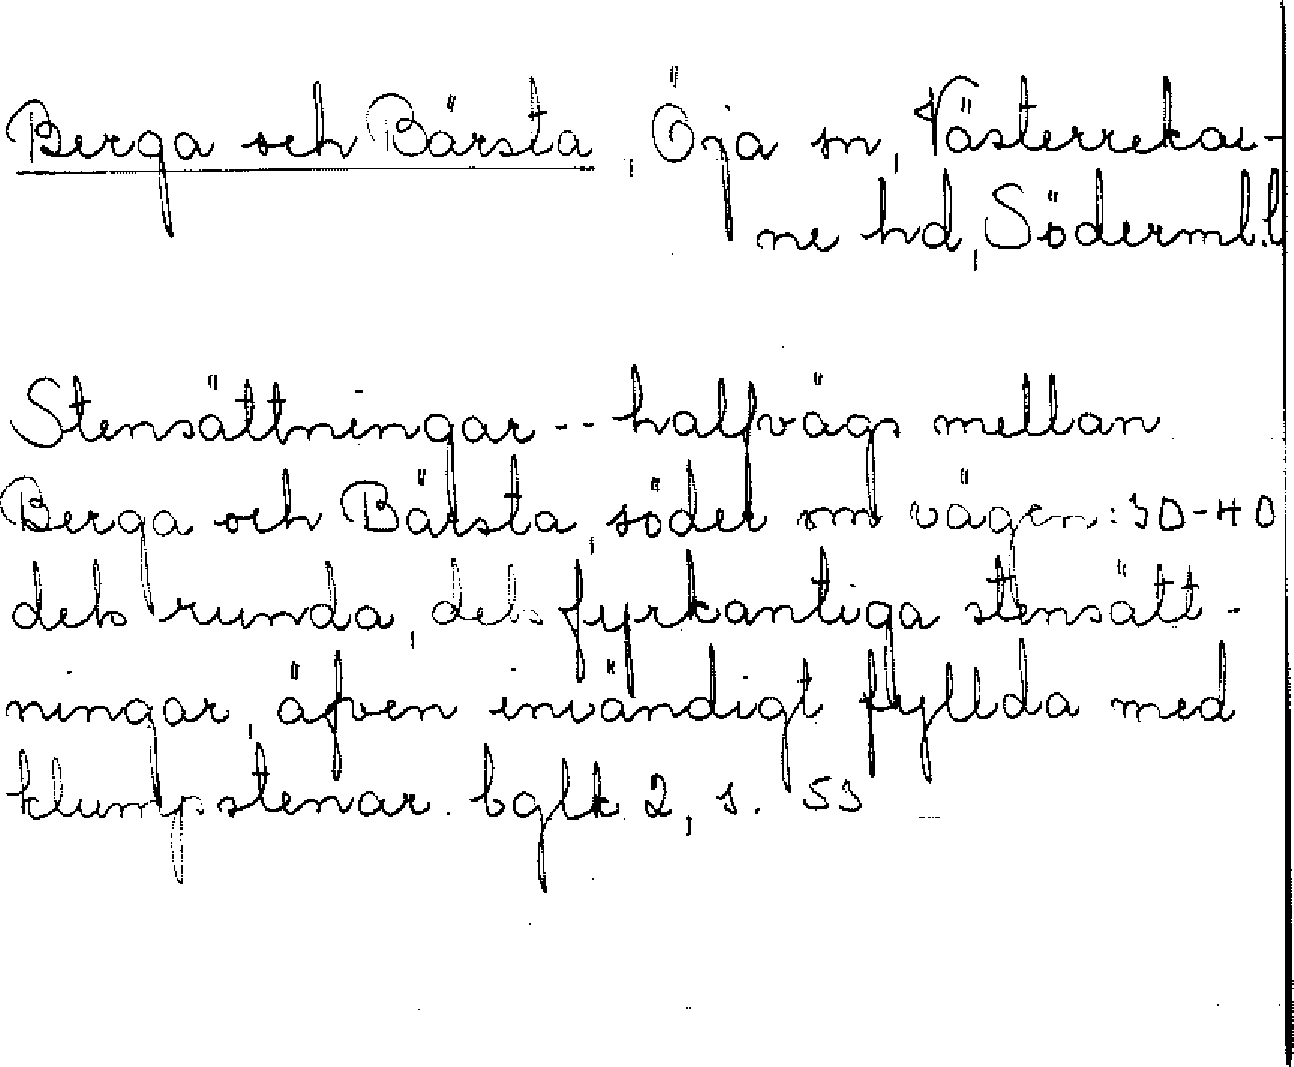 Berga och Bärsta, Öja sn, Västerrekar-
ne hd, Söderml.l
Stensättningar -- halfvägs mellan
Berga och Bärsta, söder om vägen: 30-40
dels runda, dels fyrkantiga stensätt-
ningar, äfven invändigt fyllda med
klumpstenar. bglk 2, s. 53